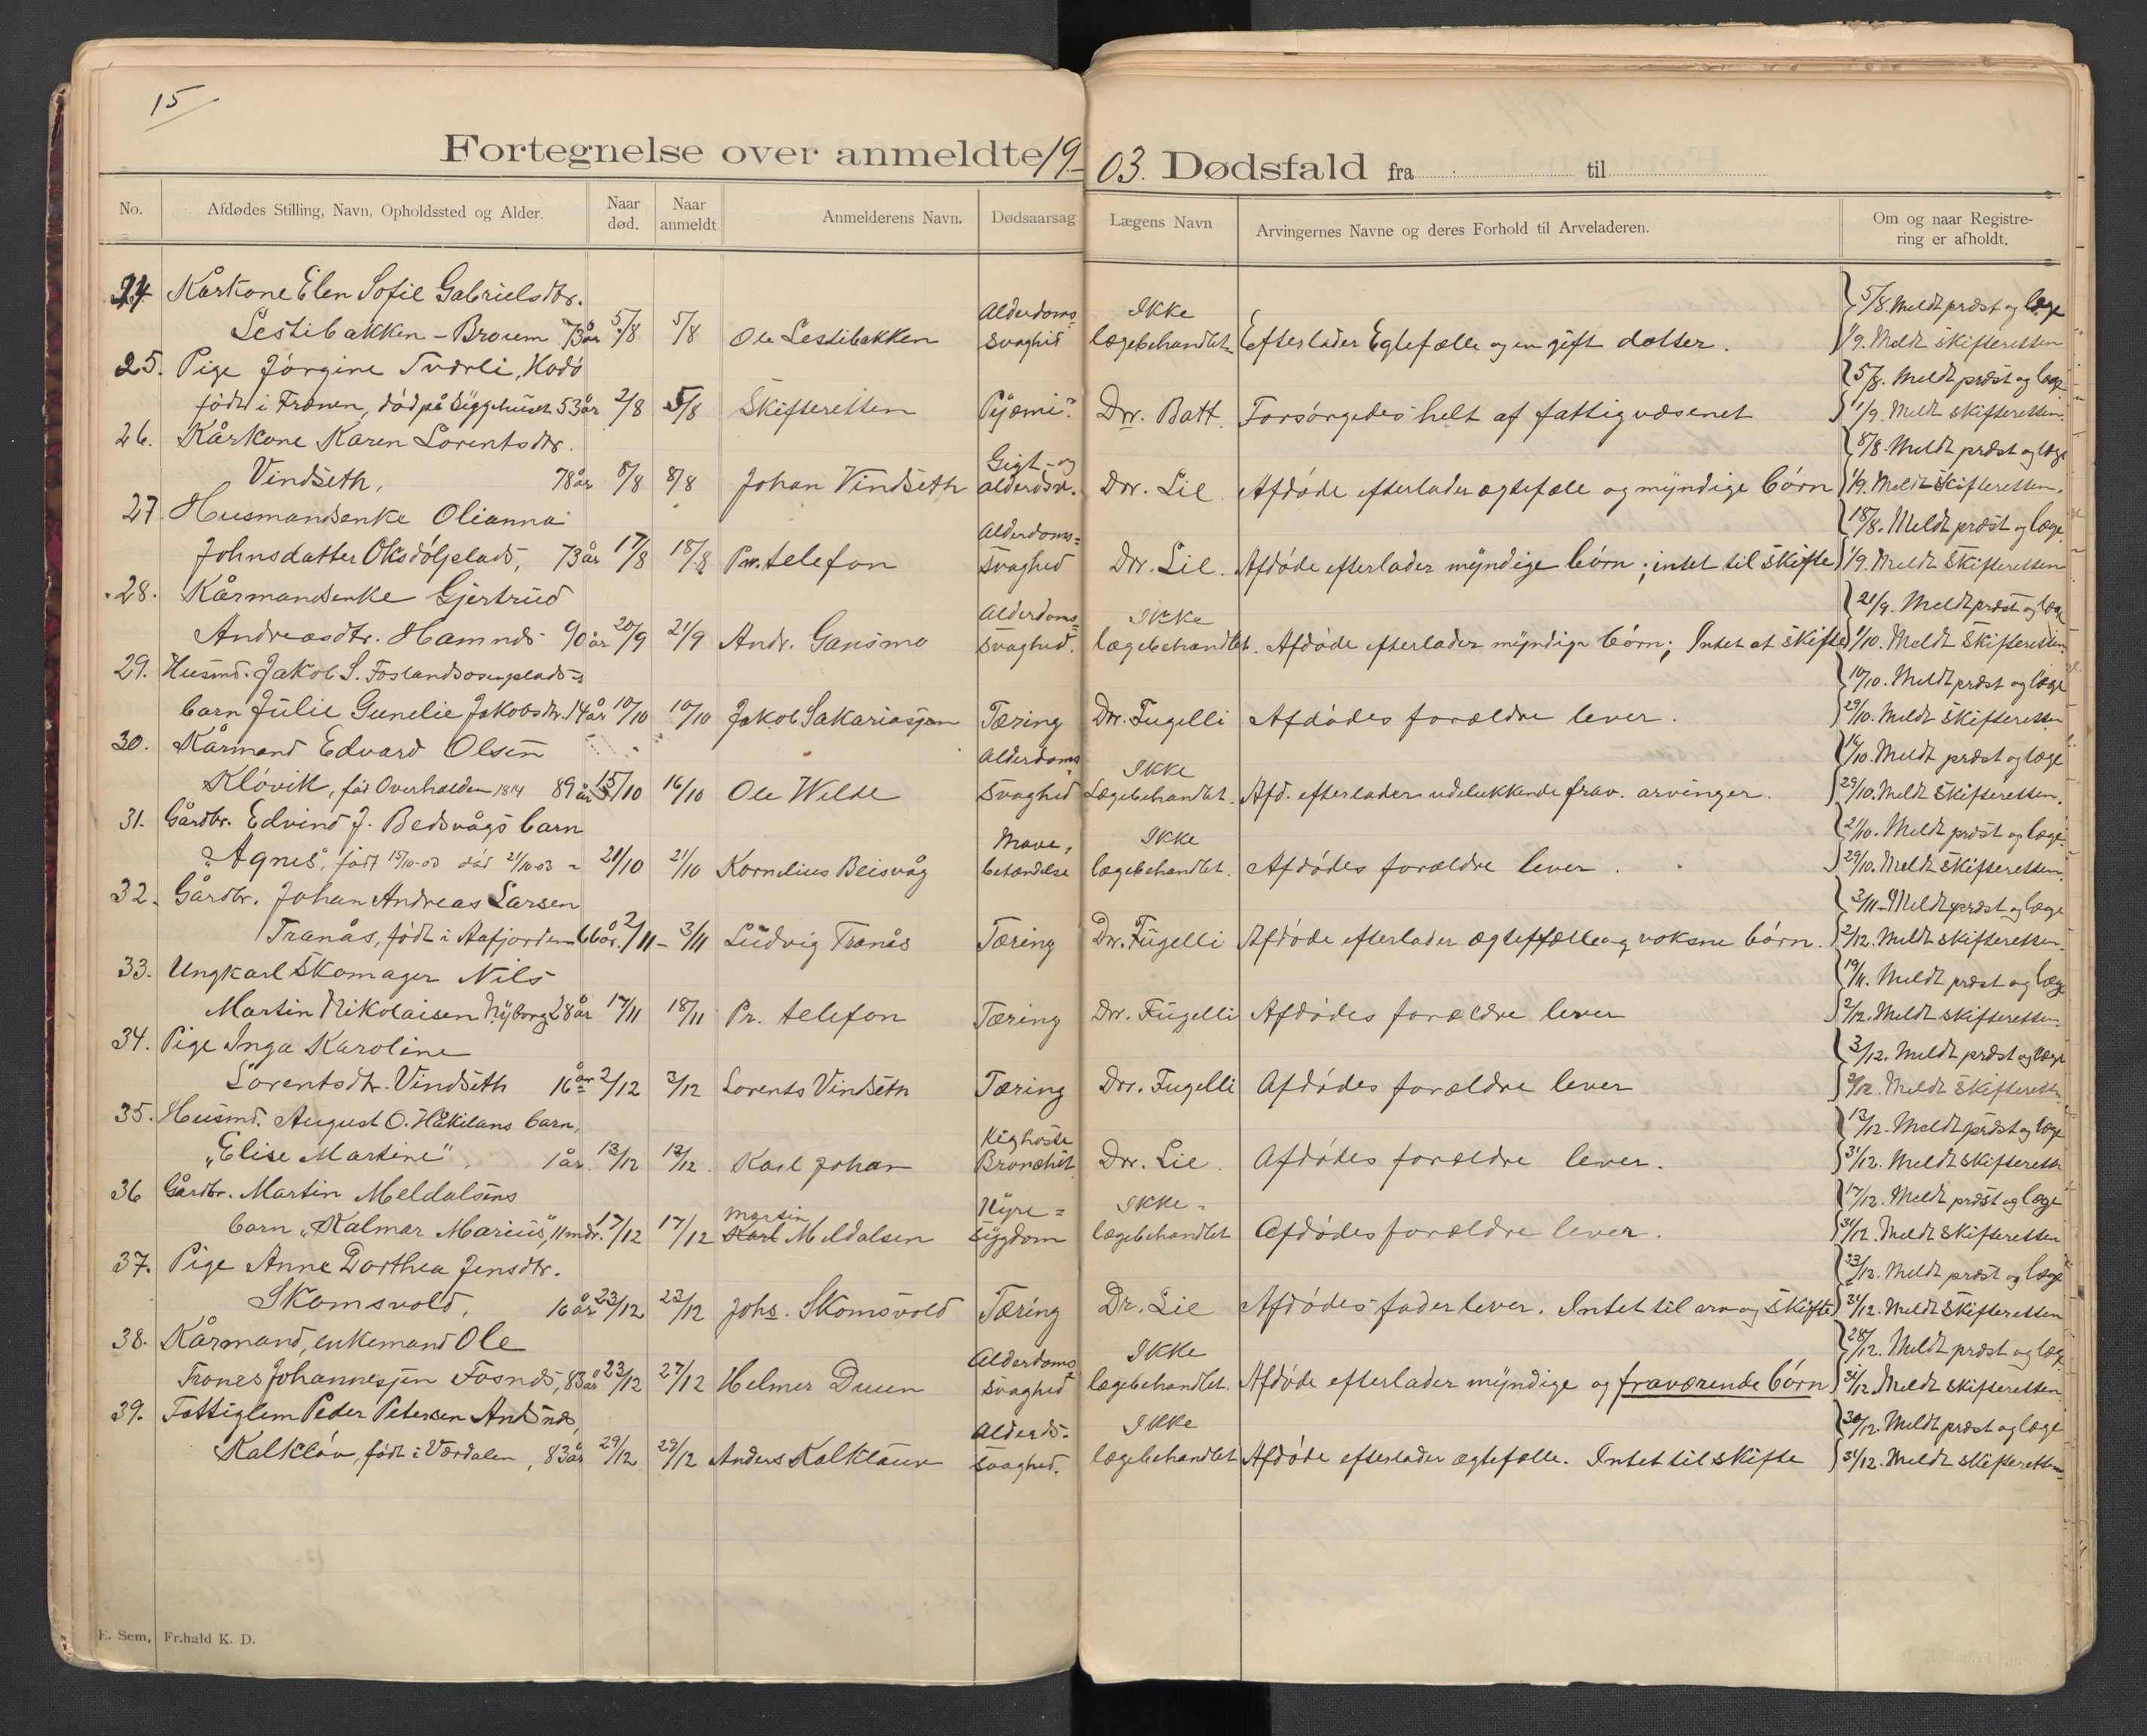 15
Fortegnelse over anmeldte 1903. Dødsfald fra til
No. Afdødes Stilling, Navn, Opholdssted og Alder. Naar død. Naar anmeldt Anmelderens Navn. Dødsaarsag Lægens Navn Arvingernes Navne og deres Forhold til Arveladeren. Om og naar Registrering er afholdt.
24 Kårkone Elen Sofie Gabrielsdtr. Alderdoms= Ikke 5/8. Meldt præst og læge
Lestibakken - Broum 73 år 5/8 5/8 Ole Lestibakken svaghed lægebehandlet Efterlader Egtefælle og en gift datter. 1/9. Meldt skifteretten
25. Pige Jørgine Tværli, Hodø 5/8. Meldt præst og læge
født i Frønen, død på Sygehuset 53 år 2/8 5/8 Skifteretten Pyæmi? Dr. Batt. Forsørgedes helt af fattigvæsenet 1/9. Meldt skifteretten
26. Kårkone Karen Lorentsdtr. Gigt- og 8/8. Meldt præst og læge
Vindseth, 78 år 8/8 8/8 Johan Vindseth alderdsv. Dr. Lie. Afdøde efterlader ægtefæle og myndige børn 1/9. Meldt Skifteretten.
27. Husmandsenke Olianna Alderdoms= 18/8. Meldt præst og læge.
Johnsdatter Oksdølplads, 73 år 17/8 18/8 Pr. telefon svaghed Dr. Lie. Afdøde efterlader myndige børn; intet til skifte 1/9. Meldt Skifteretten
28. Kårmandsenke Gjertrud Alderdoms= Ikke 21/9. Meldt præst og læge
Andreasdtr. Hamnds 90 år 20/9 21/9 Andr. Gansmo svaghed. lægebehandlet. Afdøde efterlader myndige børn; Intet at skifte 1/10. Meldt Skifteretten
29. Husmd. Jakob S. Foslandsosenplads-s 10/10. Meldt præst og læge
barn Julie Gunelie Jakobsdtr. 14 år 10/10 10/10 Jakob Sakariasen Tæring Dr. Fugelli Afdødes forældre lever. 29/10. Meldt Skifteretten
30. Kårmand Edvard Olsen Alderdoms Ikke 16/10. Meldt præst og læge
Kløvik, fød Overhalden 1814 89 år 15/10 16/10 Ole Wilde svaghed Lægebehandlet. Afd. efterlader udelukkende frav. arvinger. 29/10. Meldt Skifteretten.
31. Gårdbr. Edvind J. Bedsvågs barn Mave, Ikke 21/10. Meldt præst og læge
"Agnes", født 15/10-03 død 21/10-03 21/10 21/10 Kornelius Beisvåg betændelse lægebehandlet. Afdødes forældre lever. 29/10. Meldt Skifteretten.
32. Gårdbr. Johan Andreas Larsen 3/11. Meldt præst og læge
Tranås, født i Aafjorden 66 år. 2/11 3/11 Ludvig Tranås Tæring Dr. Fugelli Afdøde efterlader ægtefælle og voksne børn. 2/12. Meldt skifteretten.
33. Ungkarl Skomager Nils 19/11. Meldt præst og læge
Martin Nikolaisen Nyborg 28 år 17/11 18/11 Pr. telefon Tæring Dr. Fugelli Afdødes forældre lever 2/12. Meldt skifteretten
34. Pige Inga Karoline 3/12. Meldt præst og læge
Lorentsdtr. Vindseth 16 år 2/12 3/12 Lorents Vindseth Tæring Dr. Fugelli Afdødes forældre lever Meldt Skifteretten
35. Husmd. August O. Håkilans barn, Kighoste 13/12. Meldt præst og læge
"Elise Martine". 1 år. 13/12 13/12. Karl Johan Bronchit Dr. Lie. Afdødes forældre lever. 31/12. Meldt skifteretten
36 Gårdbr. Martin Meldalsens Nyre= Ikke- 17/12. Meldt præst og læge
barn "Kalmar Marius", 11 mdr. 17/12 17/12 Martin Karl Meldalsen sygdom lægebehandlet Afdødes forældre lever. 31/12. Meldt skifteretten
37. Pige Anne Dorthea Jensdtr. 23/12. Meldt præst og læge
Skomsvold, 16 år 23/12 23/12 Johs. Skomsvold Tæring Dr. Lie Afdødes fader lever. Intet til arv og skifte 31/12. Meldt Skifteretten
38. Kårmand, enkemand Ole Alderdoms Ikke 28/12. Meldt præst og læge
Trones Johannesen Fosnds, 83 år 23/12 27/12 Helmer Duun svaghed lægebehandlet. Afdøde efterlader myndige og fraværende børn 31/12. Meldt skifteretten
39. Fattiglem Peder Petersen Andsnds, Alderds- Ikke 30/12. Meldt præst og læge
Kalkløv, født i Værdalen, 83 år 29/12 29/12 Anders Kalklauv svaghed. lægebehandlet Afdøde efterlader ægtefælle. Intet til skifte 31/12. Meldt skifteretten
E. Sem, Fr.hald K. D.